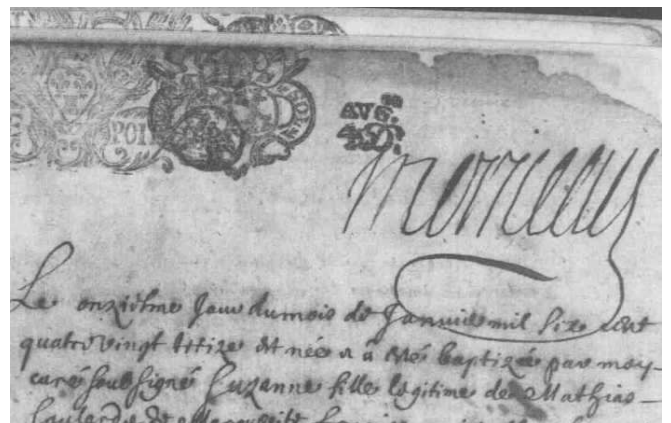 POI
AVG.
morreau
Le onziesme jour du mois de Janvie mil six cent
quatre vingt treize est née & a esté baptizée par moy
curé soubsigné Suzanne fille legitime de Mathias
de Marguerite